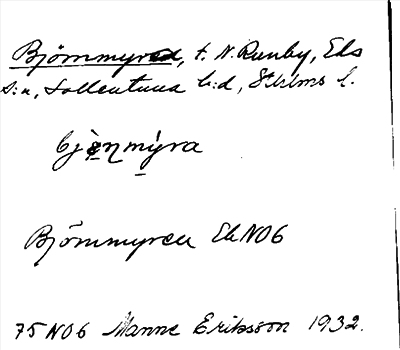 Björnmyren, t. N. Runby, Eds
s:n, Sollentuna h:d, Sthlms l.
bjèɳmýra
Björnmyren Ek NO6
75 NO6 Manne Eriksson 1932.